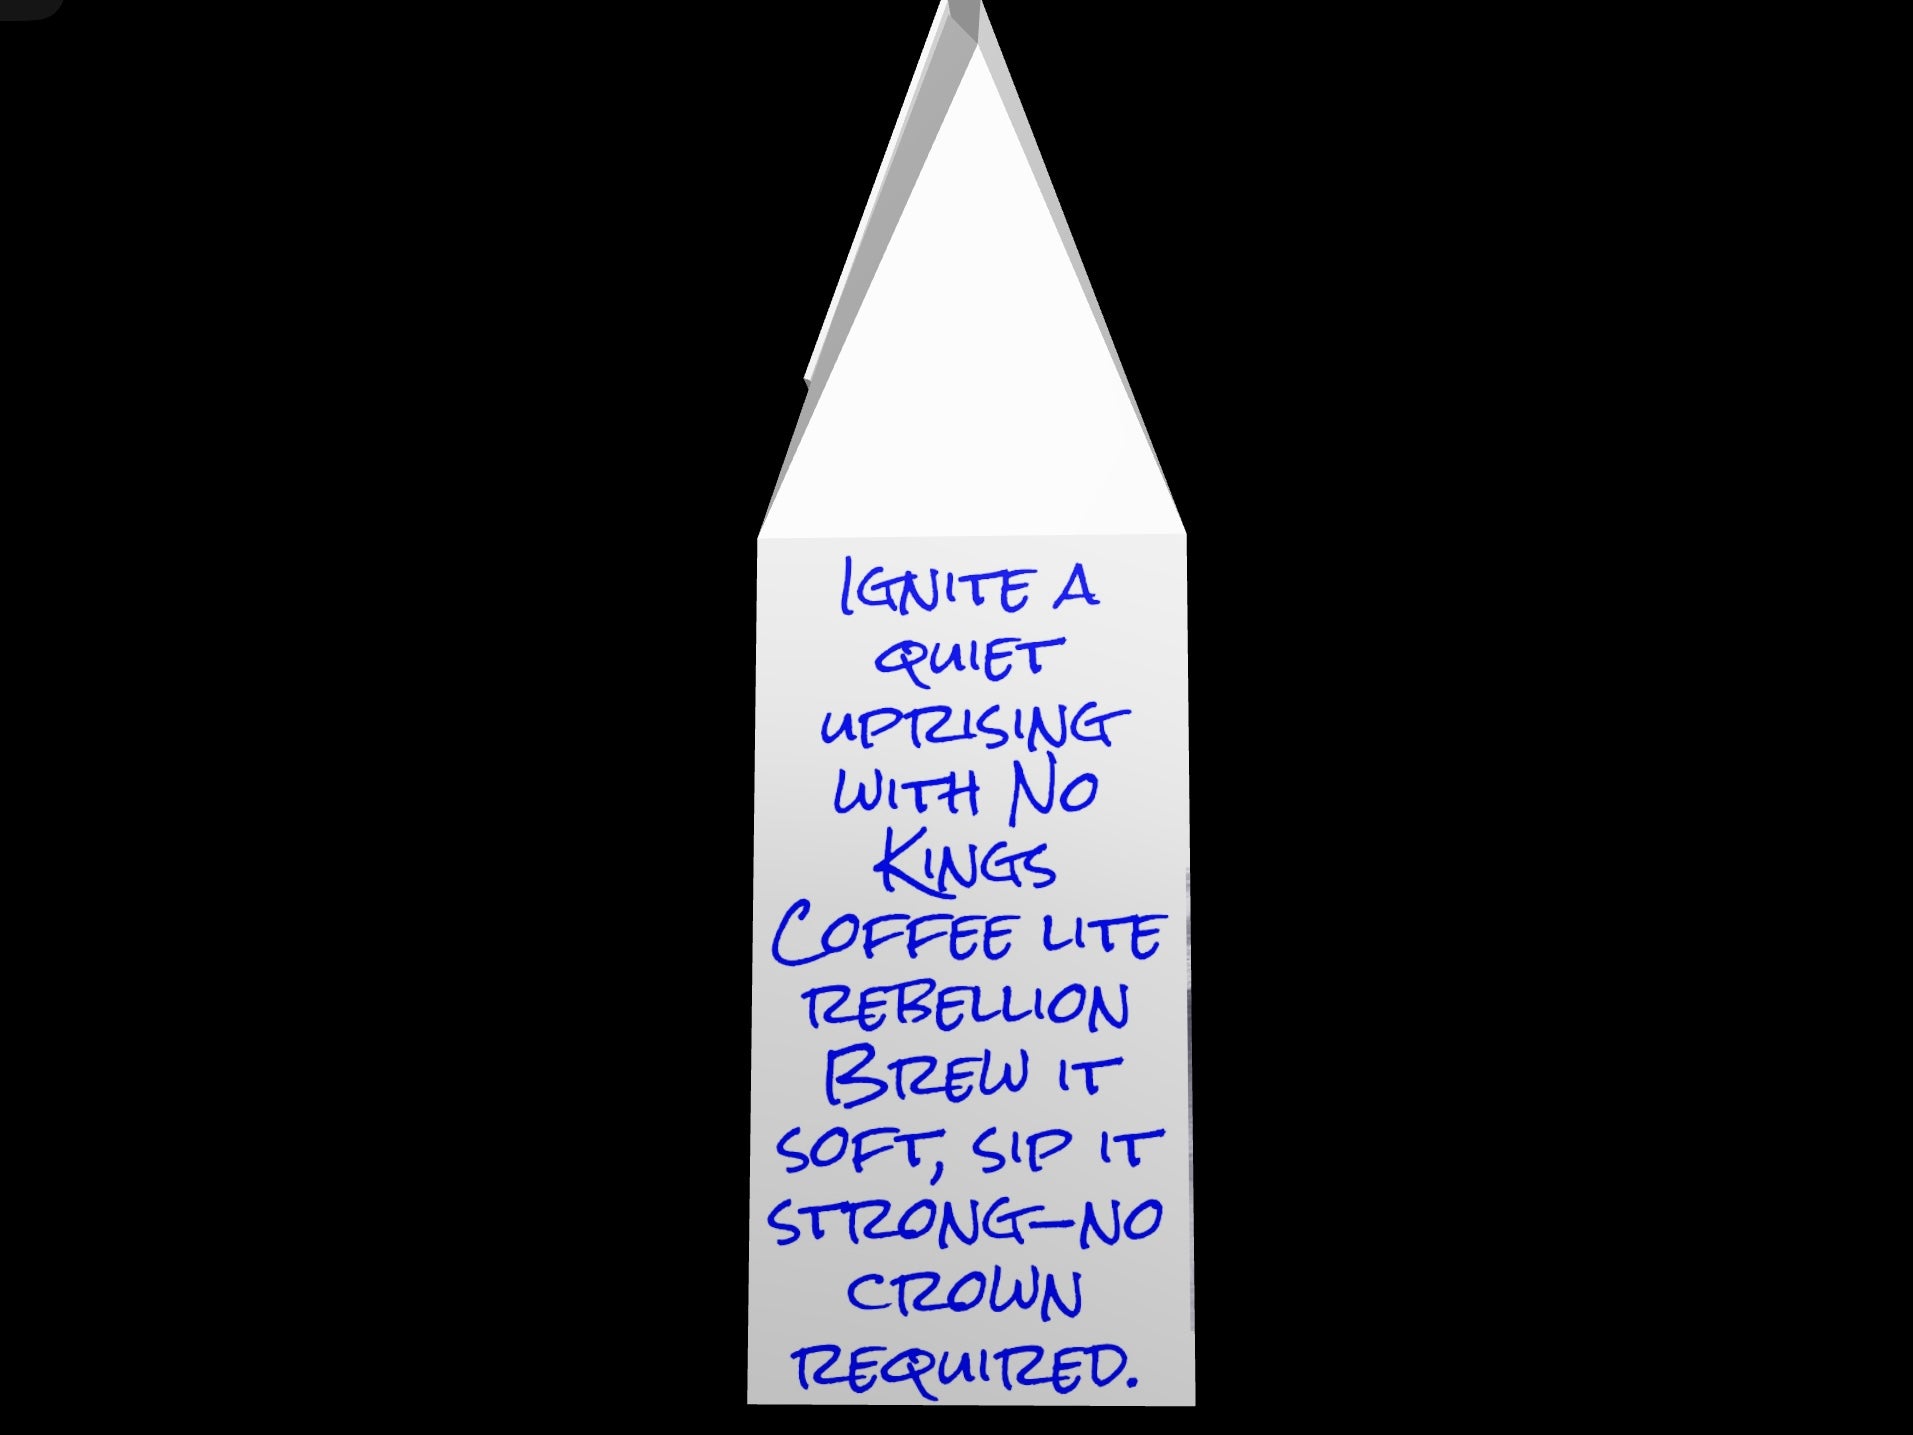 Ignite a
quiet
uprising
with No
Kings
Coffee lite
rebellion
Brew it
soft, sip it
strong—no
crown
required.